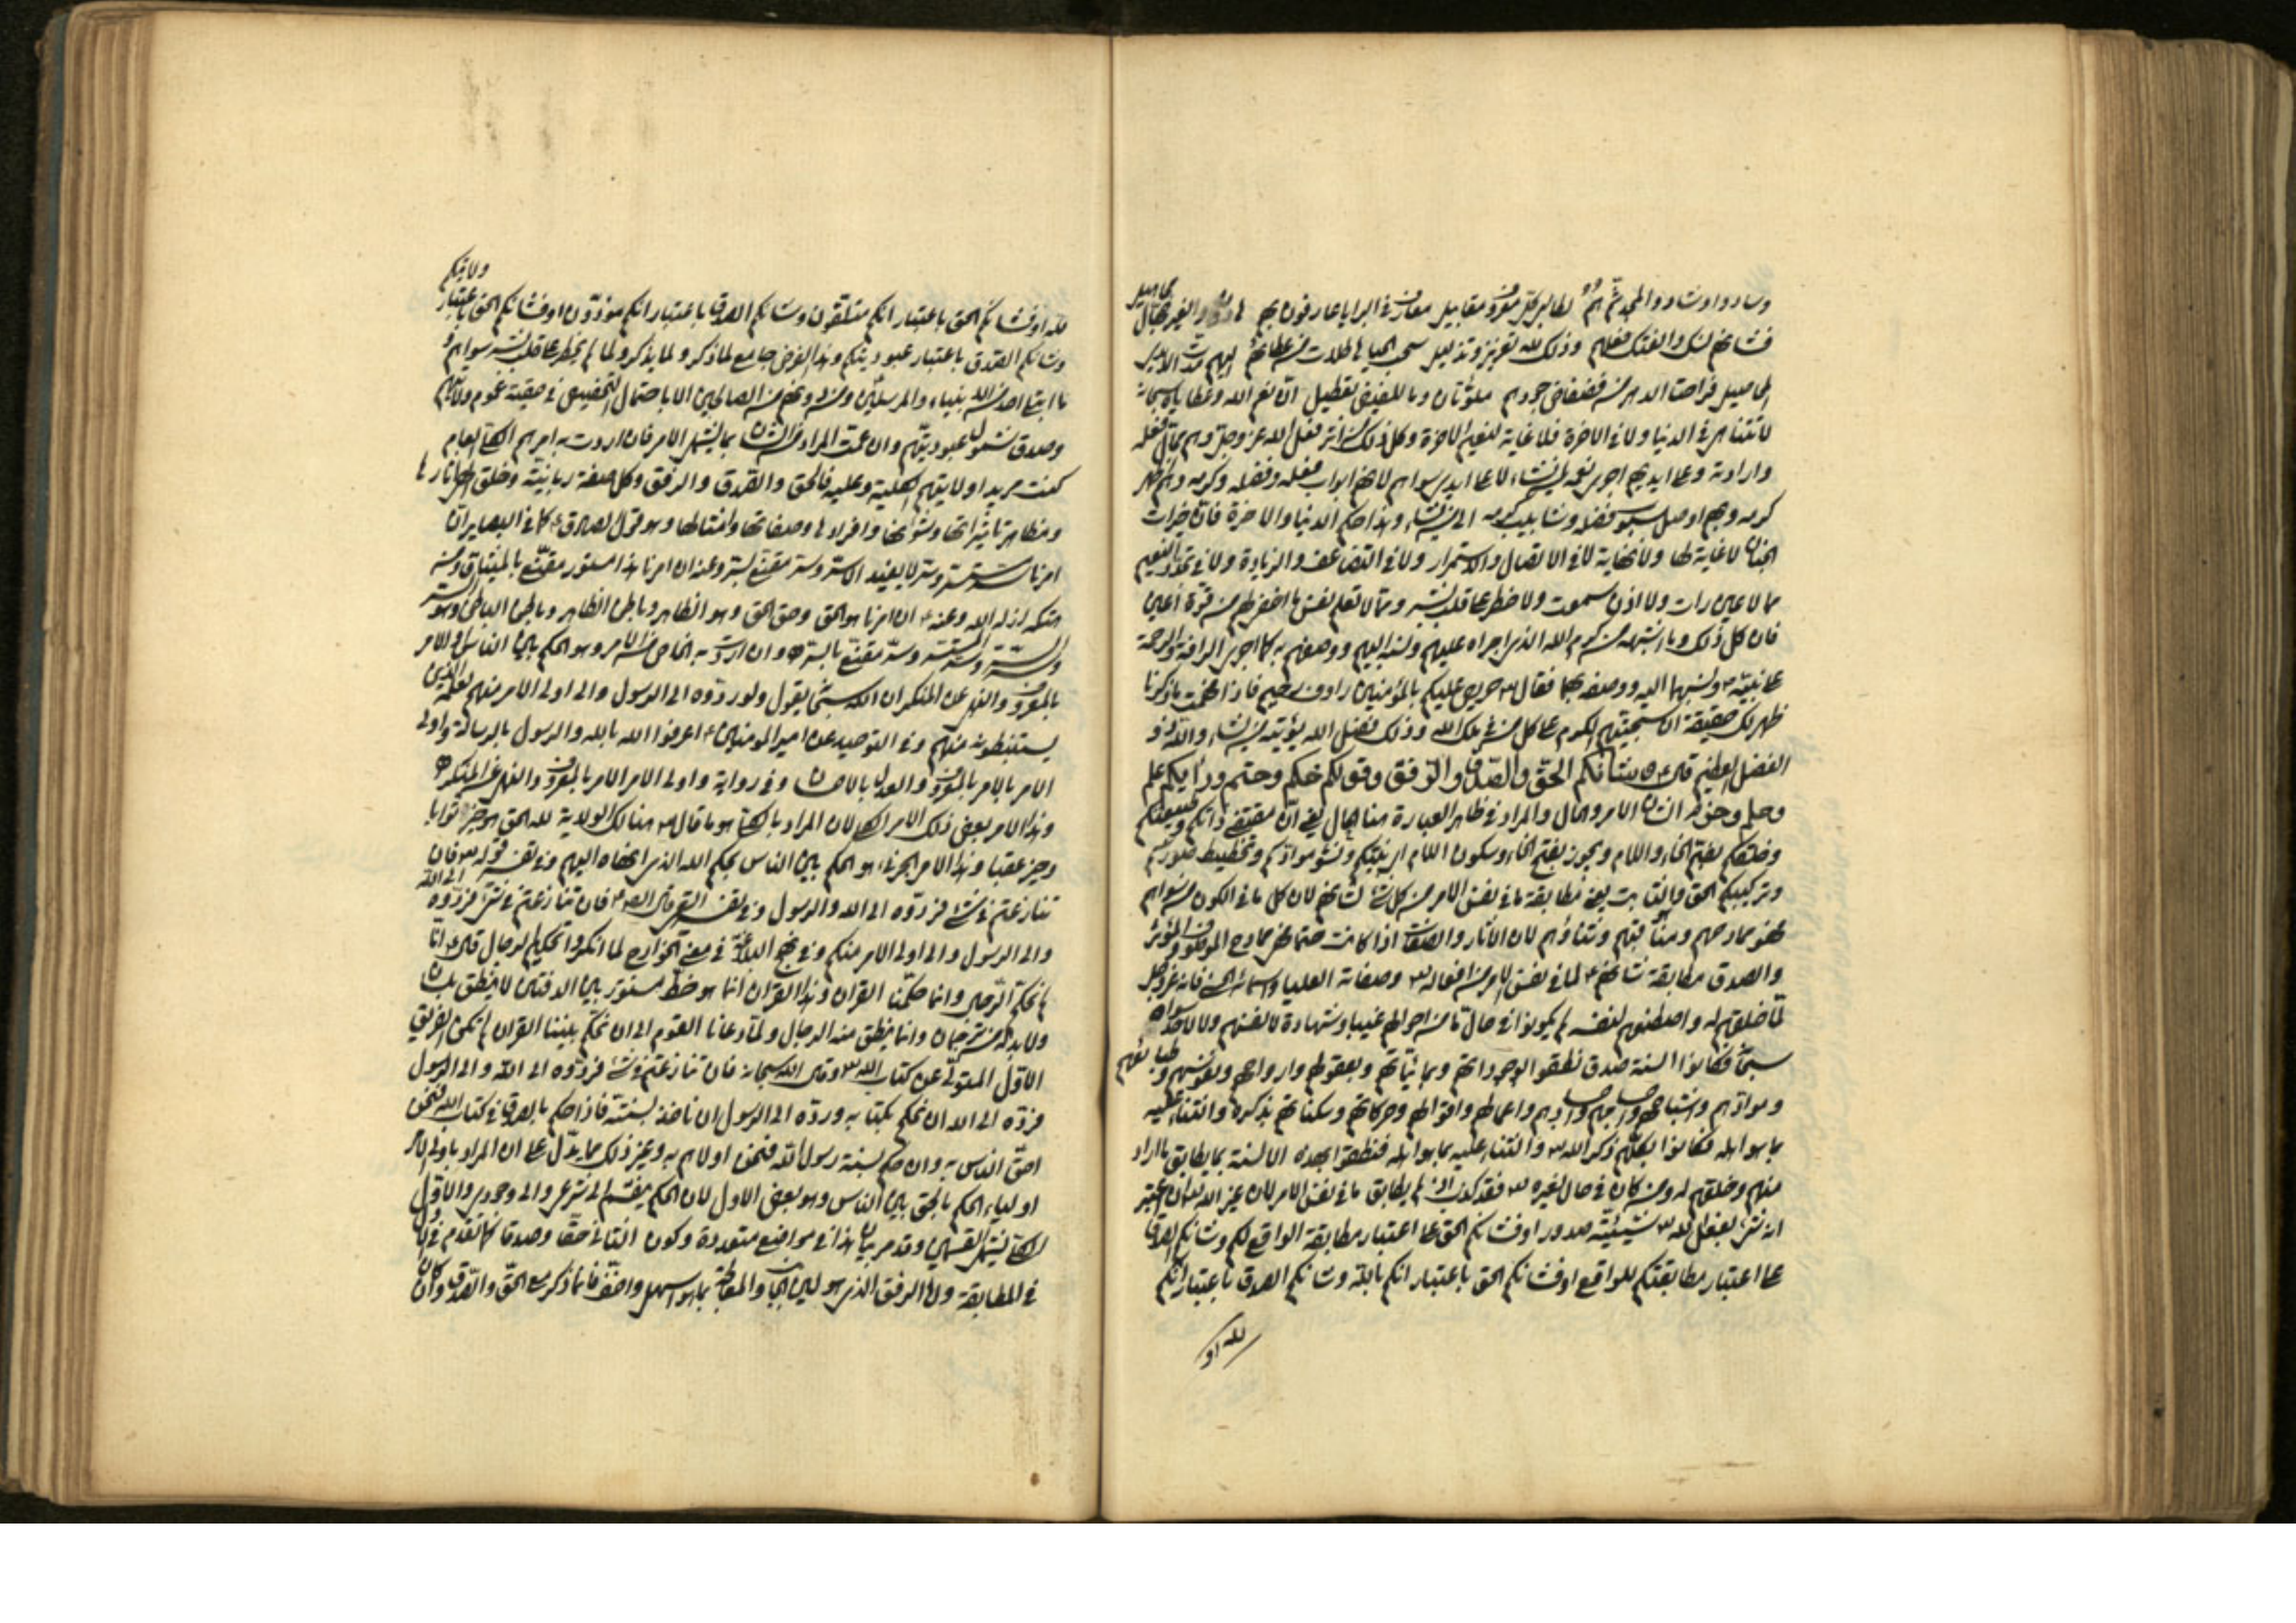 وسادوا وشادوا والمجد ثم هم لطالبي كل معروف مقابيل معارف في البرايا عارفون بهم
فشانهم لك والفتك فعلهم وذلك لله تعزيز وتذليل سحب الحيا هاطلات من عطائهم
فراحتا الدهر من فضفاض جودهم مملوءتان وما للفيض تعطيل انّ نعم الله وعطاياه سبحانه
لا تتناهى في الدنيا ولا في الاخرة فلا غاية لنعيم الاخرة وكل ذلك من اثر فعل الله عز وجل وهم محالّ فعله
وارادته وعلى ايديهم اجرى نعمه لمن يشاء لا على ايدي سواهم لانهم ابواب فعله وفضله وكرمه
كرمه وبهم اوصل فضله كرمه الى من يشاء وهذا حكم الدنيا والاخرة فانّ خيرات
الجنان لا غاية لها ولا نهاية لا في الاتصال والاستمرار ولا في التضاعف والزيادة ولا في تجدد النعيم
مما لا عين رات ولا اذن سمعت ولا خطر على قلب بشر ومما لا تعلم نفس ما اخفي لهم من قرة اعين
فان كل ذلك وما اشبهه من كرم الله الذي اجراه عليهم ونسبه اليهم ووصفهم به كما اجرى الرافة والرحمة
على نبيّه ص ونسبهما اليه ووصفه بهما فقال تع حريص عليكم بالمؤمنين رؤوف رحيم فاذا فهمت ما ذكرنا
ظهر لك حقيقة ان سجيتهم الكرم على كل من في ملك الله وذلك فضل الله يؤتيه من يشاء والله ذو
الفضل العظيم قال ع وشانكم الحق والصدق والرفق وقولكم حكم وحتم ورايكم علم
وحلم وحزم الشان الامر والحال والمراد في ظاهر العبارة هنا الحال يعني انّ مقتضى ذاتكم وطبيعتكم
وخلقكم بضم الخاء واللام ويجوز بفتح الخاء وسكون اللام اي بنيتكم ونشو موادكم وتخطيط صوركم
وتركيبكم الحق والثابت يعني مطابقة ما في نفس الامر من كل شي لشانهم لان كل ما في الكون من سواهم
فهو ممادحهم ومناقبهم وثناؤهم لان الاثار والصفات اذا كانت حتما فهي ممادح الموصوف والمؤثر
والصدق مطابقة شانهم ع لما في نفس الامر من افعاله تع وصفاته العليا واسمائه الحسنى فانه عز وجل
لمّا خلقهم له واصطنعهم لنفسه لم يكونوا في حال ما من احوالهم غيبا وشهادة لانفسهم ولا لاحد سواه
سبحانه فكانوا السنة صدق نطقوا له بوجوداتهم وماهيّاتهم وبعقولهم وارواحهم ونفوسهم وطبائعهم
وموادّهم واشباحهم واجسامهم واجسادهم واعمالهم واقوالهم وحركاتهم وسكناتهم بذكره والثناء عليه
بما هو اهله فكانوا بكلهم ذكر الله تع والثناء عليه بما هو اهله فنطقوا بهذه الالسنة بما يطابق ما اراد
منهم وخلقهم له ومن كان في حال لغيره تع فقد كذب اذ لم يطابق ما في نفس الامر لان غير الله
انه شيء بفعل الله تع شيئيّته صدور او فشانكم الحق على اعتبار مطابقة الواقع لكم وشانكم الصدق
على اعتبار مطابقتكم للواقع او فشانكم الحق باعتبار انكم بالله وشانكم الصدق باعتبار انكم
لله او
لله او فشانكم الحق باعتبار انكم متلقّون وشانكم الصدق باعتبار انكم مؤدّون او فشانكم الحق باعتبار ولايتكم
وشانكم الصدق باعتبار عبوديتكم وهذا الفرض جامع لما ذكر ولما يذكر ولما لم يخطر على قلب بشر سواهم و
ما ابتغا احد من الانبياء والمرسلين ومن دونهم من الصالحين الا باحتمال التخصيص في حقيّة عموم ولايتهم
وصدق شمول عبوديتهم وان عمّت المراد من الشان بما يشمل الامر فان اردت به امرهم الكلي العام
كنت مريدا ولايتهم الكلية وعليه فالحق والصدق والرفق وكل صفة ربانيّة وخلق الهي اثارها
ومظاهر تاثيراتها وشؤنها وافرادها وصفاتها وامثالها وهو قول الصادق ع كما في البصاير انّ
امرنا سر مستتر وسر لا يفيده الا سر وسر مقنّع بسر وعنه ان امرنا هذا مستور مقنّع بالميثاق من
هتكه اذله الله وعنه ع ان امرنا هو الحق وحق الحق وهو الظاهر وباطن الظاهر وباطن الباطن وهو السر
وسر السر وسر المستسر وسر مقنّع بالسر وان اردت به الخاص من الامر وهو الحكم بين الناس والامر
بالمعروف والنهي عن المنكر ان الله سبحانه يقول ولو ردّوه الى الرسول والى اولي الامر منهم لعلمه الذين
يستنبطونه منهم وفي التوحيد عن امير المؤمنين ع اعرفوا الله بالله والرسول بالرسالة واولي
الامر بالامر بالمعروف والعدل والاحسان وفي رواية واولي الامر بالامر بالمعروف والنهي عن المنكر
وهذا الامر بعض ذلك الامر الكلي لان المراد بالكلي هو ما قال تع هنالك الولاية لله الحق هو خير ثوابا
وخير عقبا وهذا الامر الجزئي هو الحكم بين الناس بحكم الله الذي انهاه اليهم وفي تفسير قوله تع فان
تنازعتم في شيء فردّوه الى الله والرسول وفي تفسير القمي قال الص ع فان تنازعتم في شيء فردّوه الى الله
والى الرسول والى اولي الامر منكم وفي نهج البلاغة في معنى الخوارج لما انكروا تحكيم الرجال قال ع انّا
لم نحكّم الرجال وانما حكّمنا القران وهذا القران انما هو خطّ مستور بين الدفتين لا ينطق بلسان
ولا بد له من ترجمان وانما ينطق عنه الرجال ولمّا دعانا القوم الى ان نحكّم بيننا القران لم نكن الفريق
الاول المتولّي عن كتاب الله تع وقال الله سبحانه فان تنازعتم في شيء فردّوه الى الله والى الرسول
فردّه الى الله ان نحكم بكتابه وردّه الى الرسول ان ناخذ بسنته فاذا حكم بالصدق في كتاب الله فنحن
احق الناس به وان حكم بسنة رسول الله فنحن اولاهم به وغير ذلك مما يدلّ على ان المراد باولي الامر
اولياء الحكم بالحق بين الناس وهو بعض الاول لان الحكم ينقسم الى شرعي والى وجودي والاول
الكلي يشمل القسمين وقد مر بيان هذا في مواضع متعددة وكون الثاني حقا وصدقا كما تقدم في الاول
في المطابقة واما الرفق الذي هو لين الجانب والمعاملة بما هو اسهل واخفّ فما ذكر مع الحق والصدق وان كان